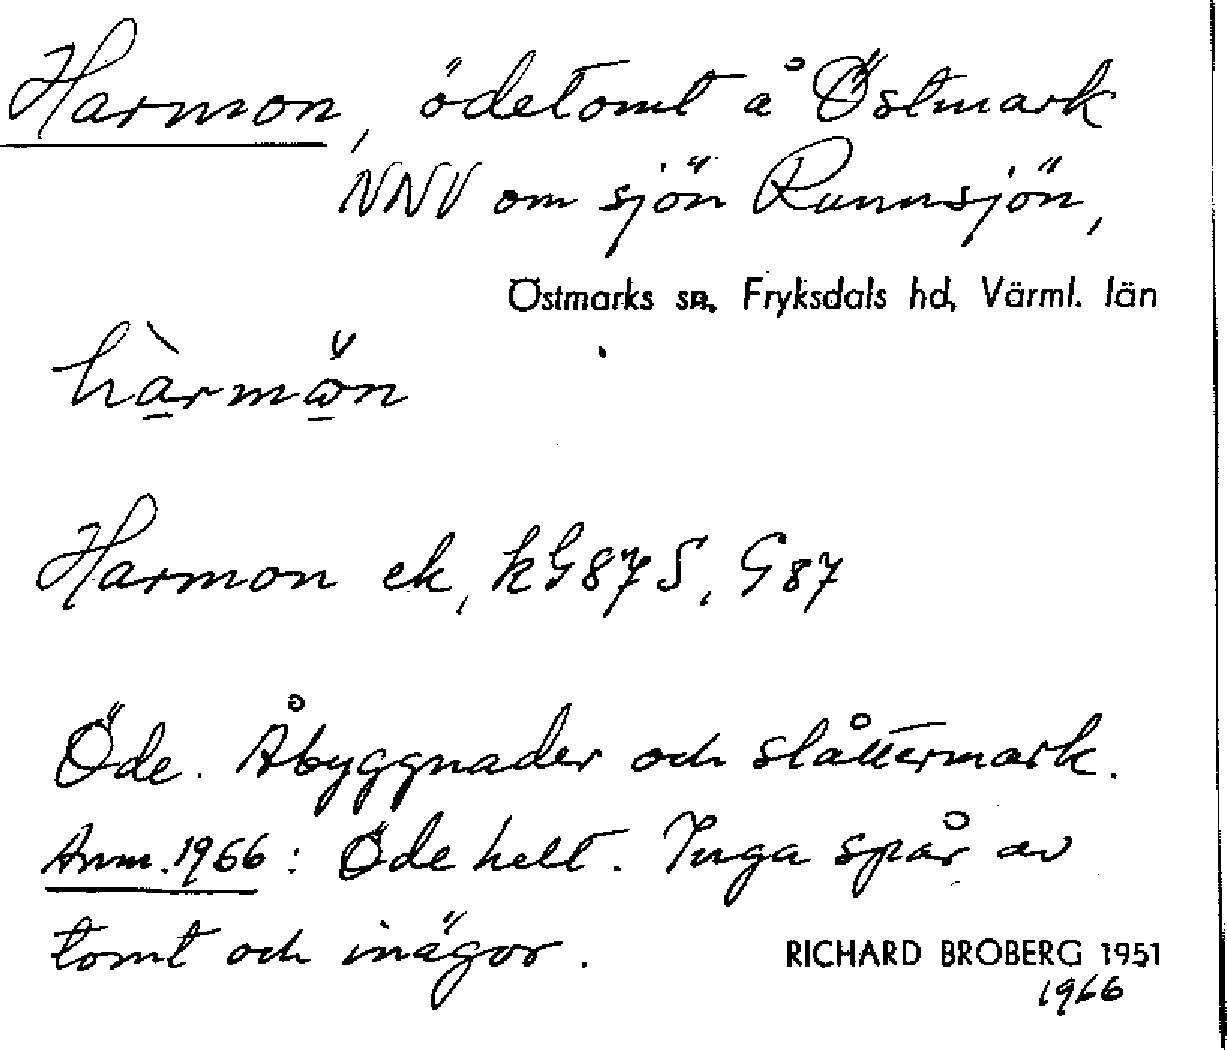 Harmon, ödetomt å Östmark
NNV om sjön Runnsjön,
Östmarks sn, Fryksdals hd, Värml. län
hàrmön
Harmon ek, kG87S, G87
Öde. Åbyggnader och slåttermark.
Anm. 1966: Öde helt. Inga spår av
tomt och inägor.
RICHARD BROBERG 1951
1966